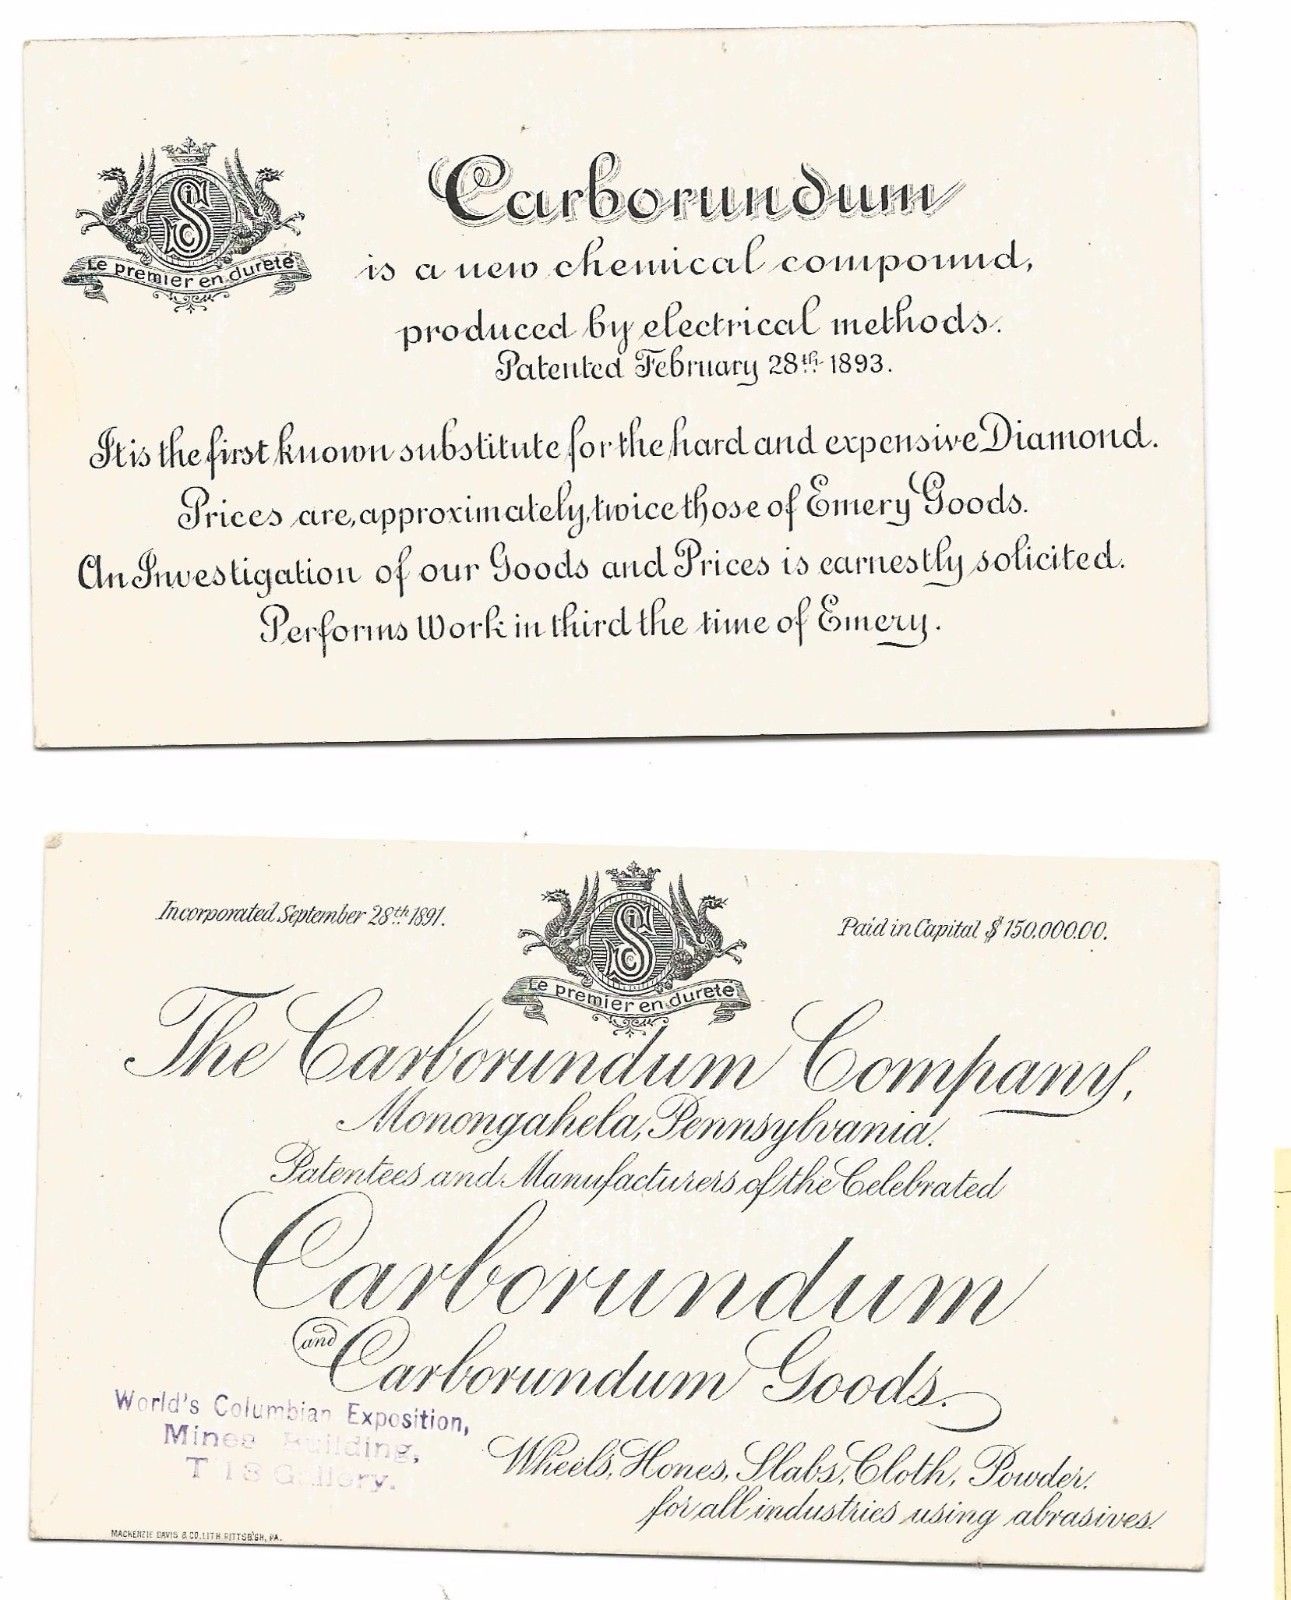 SiC
Le premier en dureté
Carborundum
is a new chemical compound,
produced by electrical methods.
Patented February 28th 1893.
It is the first known substitute for the hard and expensive Diamond.
Prices are, approximately, twice those of Emery Goods.
An Investigation of our Goods and Prices is earnestly solicited.
Performs Work in third the time of Emery.
Incorporated September 28th 1891.
SiC
Paid in Capital $150.000.00.
Le premier en dureté
The Carborundum Company,
Monongahela, Pennsylvania.
Patentees and Manufacturers of the Celebrated
Carborundum
and Carborundum Goods.
World's Columbian Exposition,
Mines Building,
Gallery.
Wheels, Hones, Slabs, Cloth, Powder.
for all industries using abrasives.
MACKENZIE DAVIS & CO. LITH. PITTSB'GH, PA.